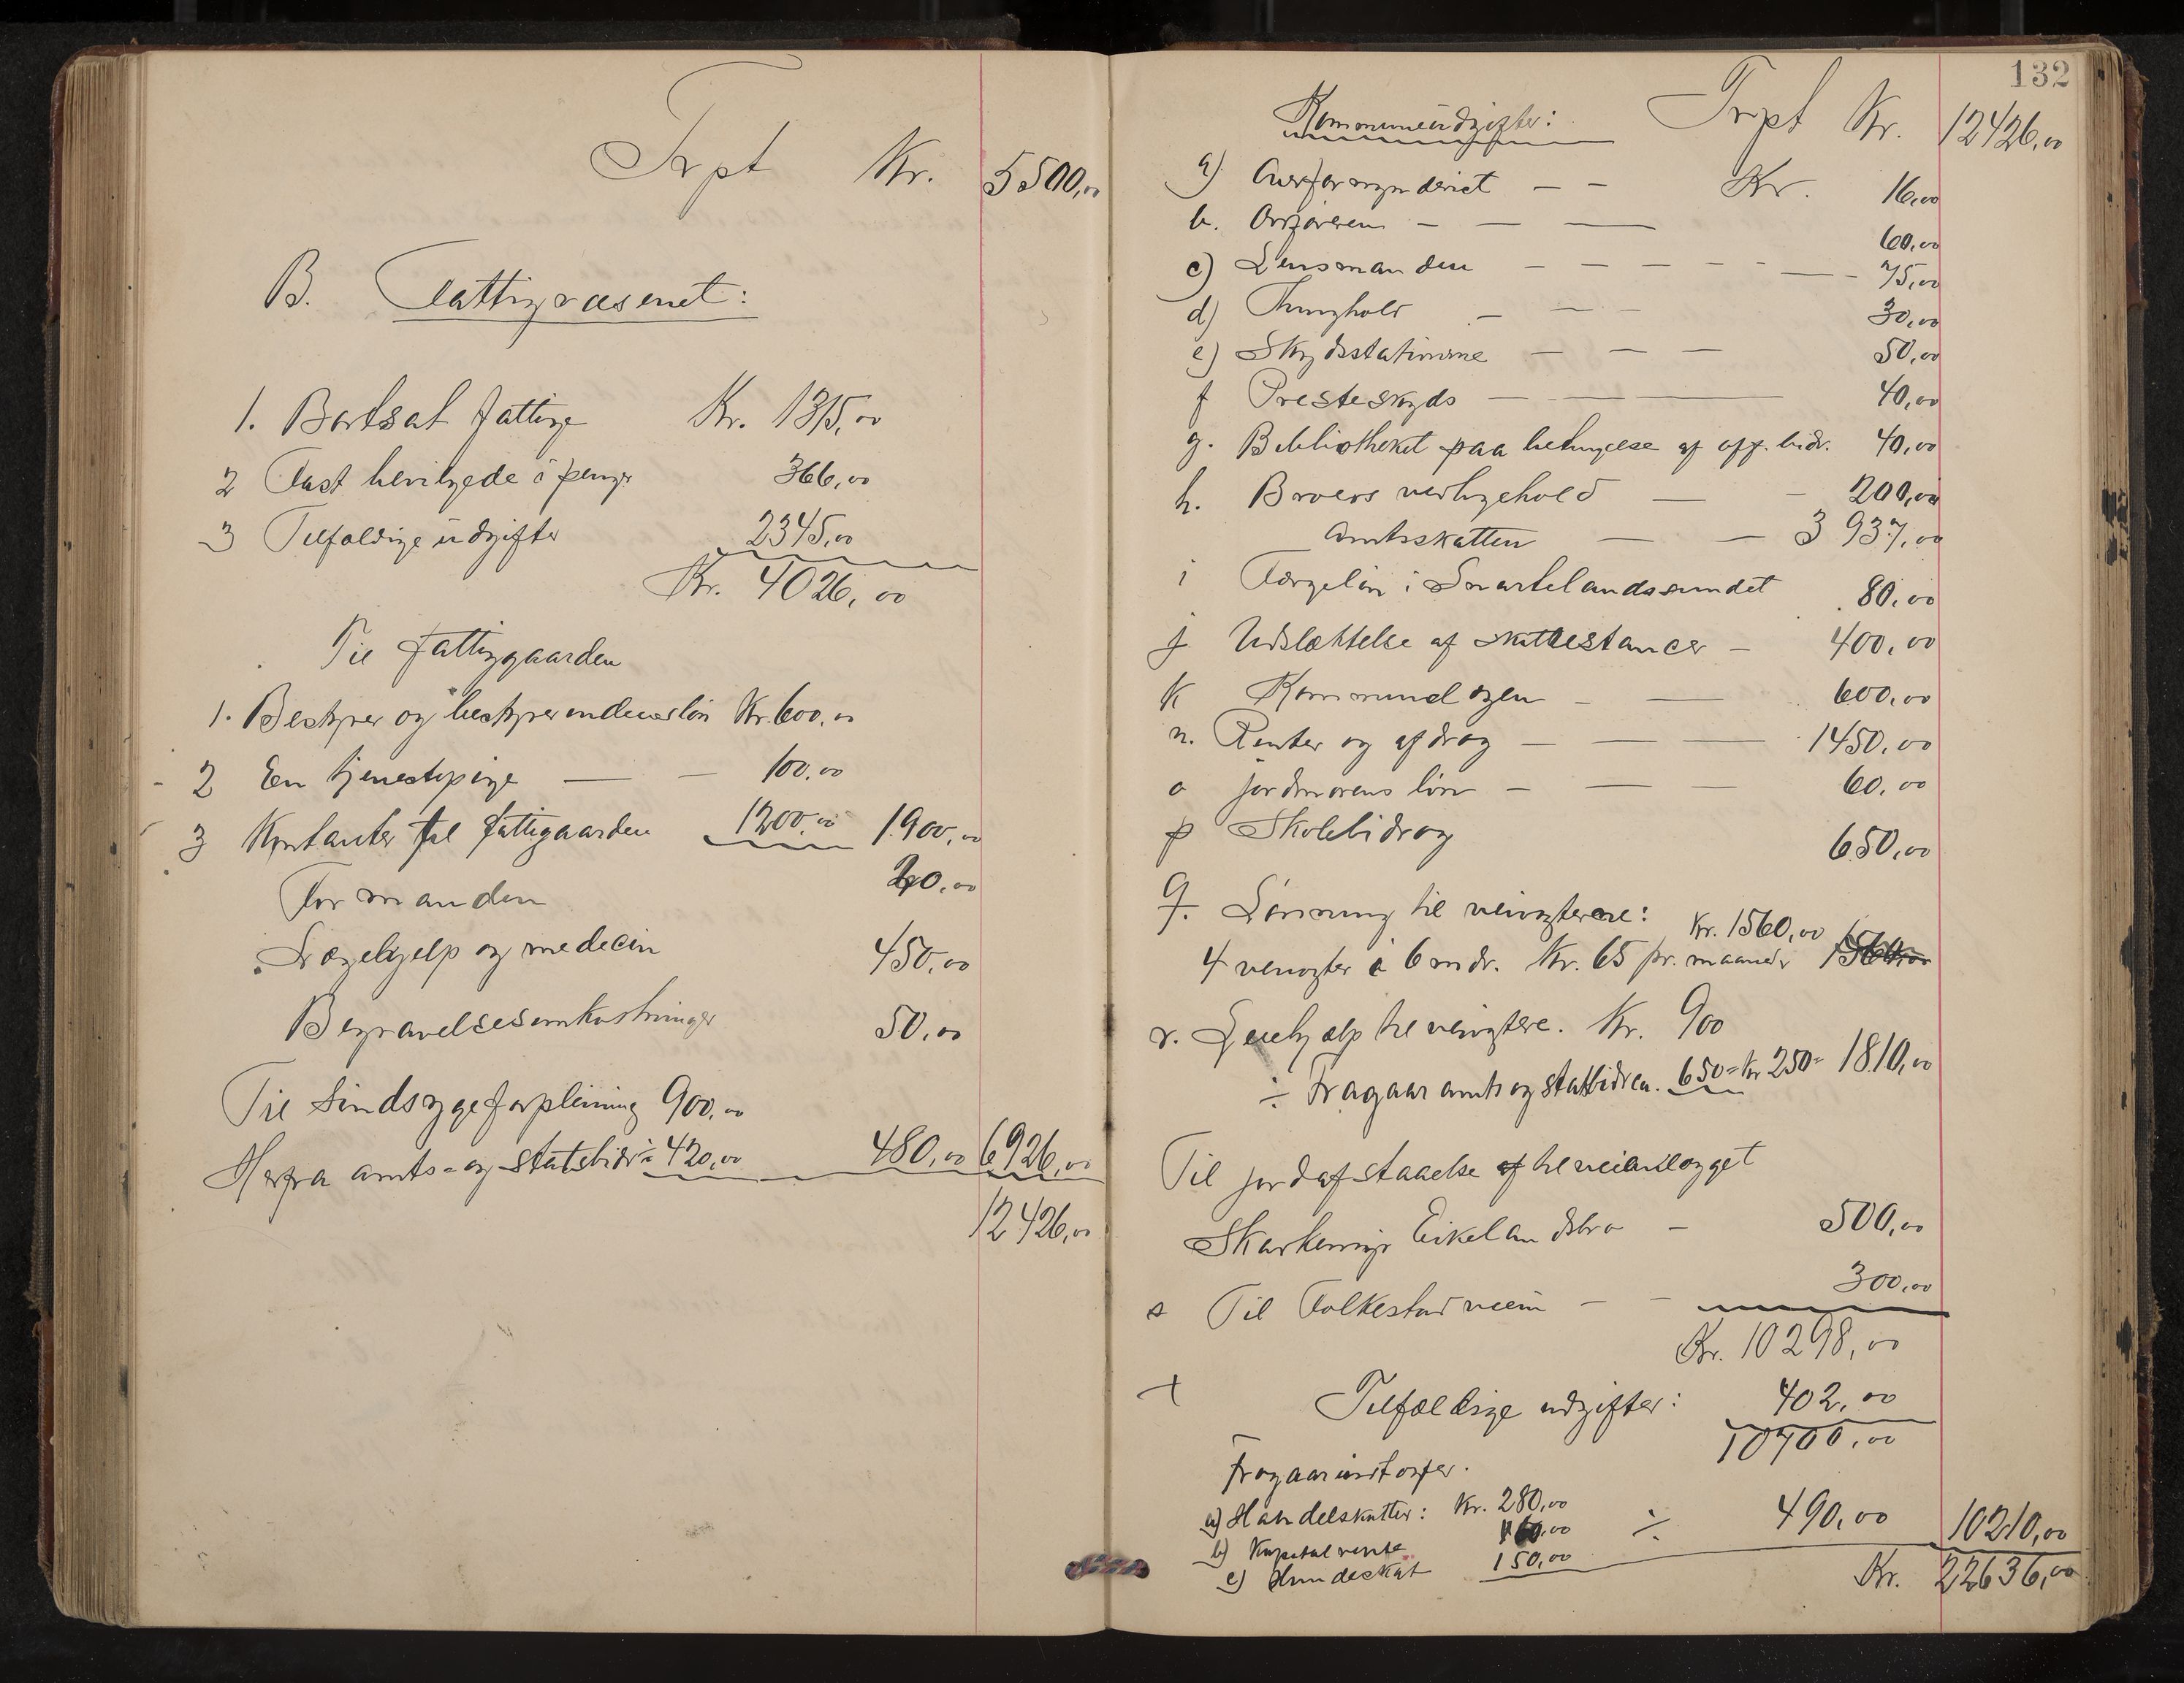 Trpt Kr. 5500,00
B. Fattigvæsenet:
1. Bortsat fattige Kr. 1315,00
2 Fast bevilgede i penge 366,00
3 Tilfældige udgifter 2345,00
Kr. 4026,00
Til fattiggaarden
1. Bestyrer og bestyrerindens løn Kr. 600,00
2 En tjenestepige — — 100,00
3 Kontanter til fattiggaarden 1200,00 1900,00
Formanden 20,00
Lægehjelp og medecin 450,00
Begravelsesomkostninger 50,00
Til Sindsygeforpleining 900,00
Herfra amts- og statsbidr. 420,00 480,00 6926,00
12426,00
132
Kommuneudgifter: Trpt Kr. 12426,00
a) Overformynderiet — — Kr. 16,00
b. Ordføreren — — — 60,00
c) Lensmanden — — — — — 75,00
d) Thinghold — — — 30,00
e) Skydsstationerne — — — 50,00
f Presteskyds — — — 40,00
g. Bibliotheket paa betingelse af off. bidr. 40,00
h. Broers vedligehold — — 200,00
Amtsskatten — — 3937,00
i Færgeløn i Svartelandssundet 80,00
j Udslættelse af skatterestancer — 400,00
k Kommunelægen — — 600,00
n. Renter og afdrag — — — 1450,00
o jordmorens løn — — — 60,00
p Skolebidrag 650,00
q. Lønning til veivogterne: Kr. 1560,00
4 veivogter á 6 mdr. Kr. 65 pr. maaned 1560,00
r. Leiehjælp til veivogtere. Kr. 900
÷ Fragaar amts og statsbidra. 650 = Kr 250 = 1810,00
Til jordafstaaelse af til veianlægget
Eikelandsbro — 500,00
s Til Folkestadveien — — 300,00
Kr. 10298,00
+ Tilfældige udgifter: 402,00
10700,00
Fragaar indtægter.
a) Handelskatter: Kr. 280,00
b) Kapitalrente 60,00 ÷ 490,00 10210,00
c) Hundeskat 150,00
Kr. 22636,00